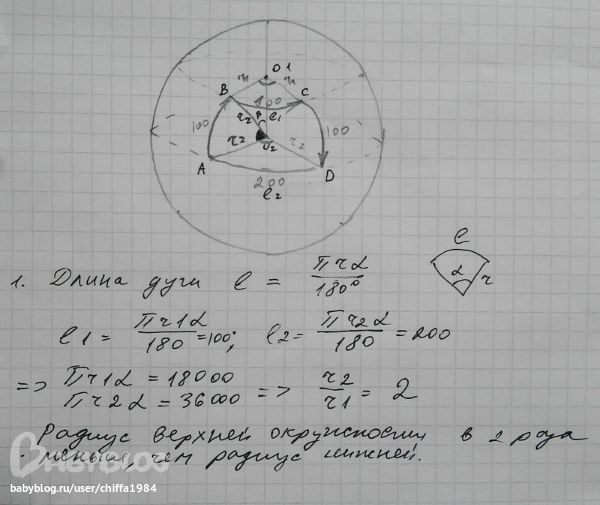 O1
r1 r1
B C
100
r2 β l1
100 r2 r2 100
O2
A D
200
l2
l
α r
1. Длина дуги l = πrα / 180°
l1 = πr1α / 180 = 100; l2 = πr2α / 180 = 200
=> πr1α = 18000 => r2 / r1 = 2
πr2α = 36000
Радиус верхней окружности в 2 раза
меньше, чем радиус нижней.
BABYBLOG
babyblog.ru/user/chiffa1984